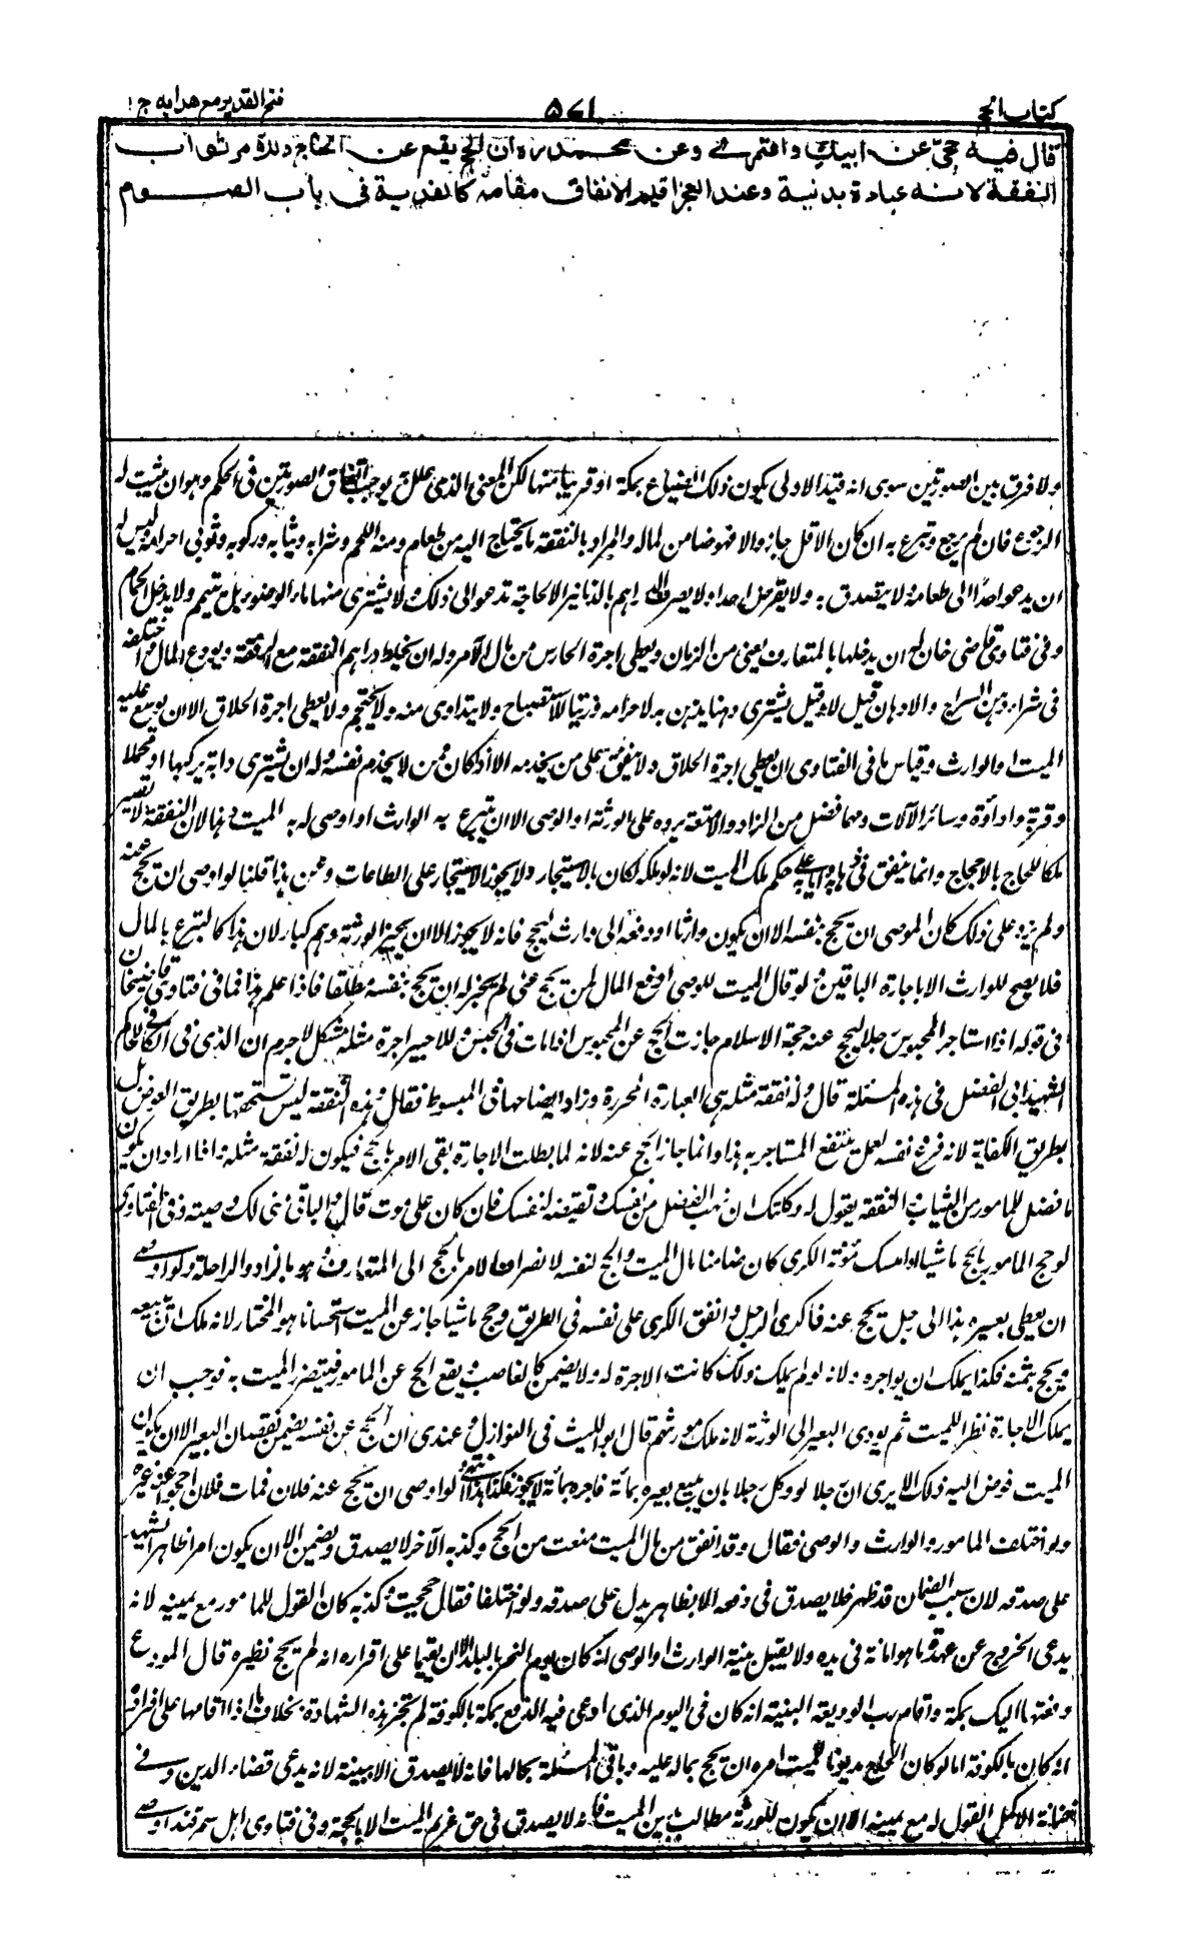 كتاب الحج
۵۷۱
فتح القدير مع هدايه ج ۱
قال فيه حجى عن ابيك واعتمرى وعن محمد رہ ان الحج يقع عن الحاج وللآمر ثواب
النفقة لانه عبادة بدنية وعند العجز اقيم الانفاق مقامه كالفدية فى باب الصوم
ولا فرق بين الصورتين سوى انه قيد الاولى بكون ذلك الضياع بمكة او قريبا منها لكن المعنى الذى علل يوجب اتفاق الصورتين فى الحكم وهو ان يثبت له
الرجوع فان لم يرجع وتبرع به ان كان الاقل جاز والا فهو ضامن لماله والمراد بالنفقة ما يحتاج اليه من طعام ومنه اللحم وشرابه وثيابه وركوبه وثوبى احرامه وليس له
ان يدعو احدا الى طعامه ولا يتصدق به ولا يقرض احدا ولا يصرف الدراهم بالدنانير الا لحاجة تدعو الى ذلك ولا يشترى منها ماء الوضوء بل يتيمم ولا يدخل الحمام
وفى فتاوى قاضى خان له ان يدخلها بالمتعارف يعنى من الزمان ويعطى اجرة الحارس من مال الآمر وله ان يخلط دراهم النفقة مع الرفقة ويودع المال واختلف
فى شراء دهن السراج والادهان قيل لا وقيل يشترى دهنا يدهن به لاحرامه وزيتا للاستصباح ولا يتداوى منه ولا يحتجم ولا يعطى اجرة الحلاق الا ان يوسع عليه
الميت او الوارث وقياس ما فى الفتاوى ان يعطى اجرة الحلاق ولا ينفق على من يخدمه الا اذا كان ممن لا يخدم نفسه وله ان يشترى دابة يركبها او محملا
وقربة واداوة وسائر الآلات ومهما فضل من الزاد والامتعة يرده على الورثة او الوصى الا ان يتبرع به الوارث او اوصى له به الميت وهذا لان النفقة لا تصير
ملكا للحاج بالاحجاج وانما ينفق فى ذهابه وايابه على حكم ملك الميت لانه لو ملكه لكان بالاستيجار ولا يجوز الاستيجار على الطاعات وعن هذا قلنا لو اوصى ان يحج عنه
ولم يزد على ذلك كان للوصى ان يحج بنفسه الا ان يكون وارثا او دفعه الى وارث ليحج فانه لا يجوز الا ان يجيز الورثة وهم كبار لان هذا كالتبرع بالمال
فلا يصح للوارث الا باجازة الباقين ولو قال الميت للوصى ادفع المال لمن يحج عنى لم يجز له ان يحج بنفسه مطلقا فاذا علم هذا فما فى فتاوى قاضيخان
فى قوله اذا استاجر المحبوس رجلا ليحج عنه حجة الاسلام جازت الحج عن المحبوس اذا مات فى الحبس وللاجير اجرة مثله مشكل لا جرم ان الذى فى الكافى للحاكم
الشهيد ابى الفضل فى هذه المسئلة قال وله نفقة مثله هى العبارة المحررة وزاد ايضاحها فى المبسوط فقال وهذه النفقة ليس يستحقها بطريق العوض بل
بطريق الكفاية لانه فرغ نفسه لعمل ينتفع المستاجر به هذا وانما جاز الحج عنه لانه لما بطلت الاجارة بقى الامر بالحج فيكون له نفقة مثله واذا اراد ان يكون
ما فضل للمامور من الثياب والنفقة يقول له وكلتك ان تهب الفضل من نفسك وتقبضه لنفسك فان كان على موت قال والباقى منى لك وصية وفى الفتاوى
لو حج المامور بالحج ماشيا وامسك مئونة الكرى كان ضامنا مال الميت والحج لنفسه لانصراف الامر بالحج الى المتعارف وهو بالزاد والراحلة ولو اوصى
ان يعطى بعيره هذا الى رجل يحج عنه فاكرى الرجل وانفق الكرى على نفسه فى الطريق وحج ماشيا جاز عن الميت استحسانا هو المختار لانه ملك ان يبيعه
ويحج بثمنه فكذا يملك ان يواجره ولانه لو لم يملك ذلك كانت الاجرة له ولا يضمن كالغاصب ويقع الحج عن المامور فيتضرر الميت به فوجب ان
يملك الاجارة نظرا للميت ثم يودى البعير الى الورثة لانه ملك مورثهم قال ابو الليث فى النوازل وعندى ان الحج عن نفسه يضمن نقصان البعير الا ان يكون
الميت فوض اليه ذلك الا يرى ان رجلا لو وكل رجلا بان يبيع بعيره بمائة فاجره بمائة لا يجوز فكذا هذا لو اوصى ان يحج عنه فلان فمات فلان احجوا عنه غيره
ولو اختلف المامور والوارث والوصى فقال وقد انفق من مال الميت منعت من الحج وكذبه الآخر لا يصدق ويضمن الا ان يكون امرا ظاهرا يشهد
على صدقه لان سبب الضمان قد ظهر فلا يصدق فى دفعه الا بظاهر يدل على صدقه ولو اختلفا فقال حججت وكذبه كان القول للمامور مع يمينه لانه
يدعى الخروج عن عهدة ما هو امانة فى يده ولا يقبل بينة الوارث او الوصى انه كان يوم النحر بالبلد الا ان يقيما على اقراره انه لم يحج نظيره قال المودع
دفعتها اليك بمكة واقام رب الوديعة البينة انه كان فى اليوم الذى ادعى فيه الدفع بمكة بالكوفة لم تجز هذه الشهادة بخلاف ما اذا اقامها على اقراره
انه كان بالكوفة اما لو كان الحاج مديونا للميت امره ان يحج بماله عليه وباقى المسئلة بحالها فانه لا يصدق الا ببينة لانه يدعى قضاء الدين وفى
خزانة الاكمل القول له مع يمينه الا ان يكون للورثة مطالب بدين الميت فانه لا يصدق فى حق غريم الميت الا بالحجة وفى فتاوى اهل سمرقند اوصى